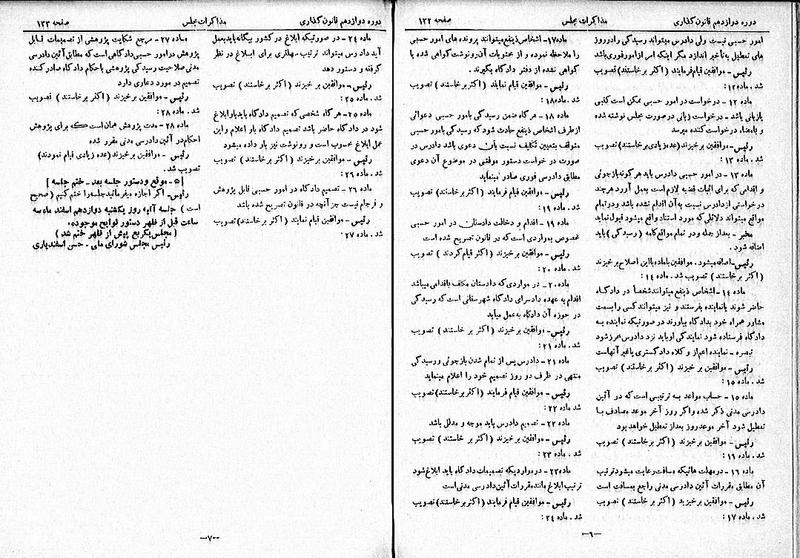 دوره دوازدهم قانون گذاری
مذاکرات مجلس
صفحه ۱۲۲
امور حسبی نیست ولی دادرس میتواند رسیدگی را در روز
های تعطیل بتأخیر اندازد مگر اینکه امر از امور فوری باشد
رئیس - موافقین قیام فرمایند (اکثر برخاستند) تصویب
شد. ماده ۱۲:
ماده ۱۲ - درخواست در امور حسبی ممکن است کتبی
یا زبانی باشد - درخواست زبانی در صورت مجلس نوشته شده
و بامضاء درخواست کننده میرسد
رئیس - موافقین برخیزند (عده زیادی برخاستند) تصویب
شد. ماده ۱۳:
ماده ۱۳ - در امور حسبی دادرس باید هر گونه بازجوئی
و اقدامی که برای اثبات قضیه لازم است بعمل آورد هر چند
درخواستی از دادرس نسبت به آن اقدام نشده باشد و در تمام
مواقع میتواند دلائلی که مورد استناد واقع میشود قبول نماید
مخبر - بعد از جمله و در تمام مواقع کلمه (رسیدگی) باید
اضافه شود.
رئیس - اضافه میشود. موافقین با ماده با این اصلاح برخیزند
(اکثر برخاستند) تصویب شد. ماده ۱۴:
ماده ۱۴ - اشخاص ذینفع میتوانند شخصاً در دادگاه
حاضر شوند یا نماینده بفرستند و نیز میتوانند کسی را بسمت
مشاور همراه خود بدادگاه بیاورند در صورتیکه نماینده به
دادگاه فرستاده شود نمایندگی او باید نزد دادرس محرز شود
تبصره - نماینده اعم از وکلاء دادگستری یا غیر آنهاست
رئیس - موافقین برخیزند (اکثر برخاستند) تصویب
شد. ماده ۱۵:
ماده ۱۵ - حساب مواعد به ترتیبی است که در آئین
دادرسی مدنی ذکر شده و اگر روز آخر موعد مصادف با
تعطیل شود آخر موعد روز بعد از تعطیل خواهد بود
رئیس - موافقین برخیزند (اکثر برخاستند) تصویب
شد. ماده ۱۶:
ماده ۱۶ - در مهلت هائیکه مسافت رعایت میشود ترتیب
آن مطابق مقررات آئین دادرسی مدنی راجع بمسافت است
رئیس - موافقین برخیزند (اکثر برخاستند) تصویب
شد. ماده ۱۷:
ماده ۱۷ - اشخاص ذینفع میتوانند پرونده های امور حسبی
را ملاحظه نموده و از محتویات آن رونوشت گواهی شده یا
گواهی نشده از دفتر دادگاه بگیرند.
رئیس - موافقین قیام نمایند (اکثر برخاستند) تصویب
شد. ماده ۱۸:
ماده ۱۸ - هر گاه ضمن رسیدگی بامور حسبی دعوائی
از طرف اشخاص ذینفع حادث شود که رسیدگی بامور حسبی
متوقف بتعیین تکلیف نسبت بآن دعوی باشد دادرس در
صورت درخواست دستور موقتی در موضوع آن دعوی
مطابق دادرسی فوری صادر مینماید
رئیس - موافقین قیام فرمایند (اکثر برخاستند) تصویب
شد. ماده ۱۹:
ماده ۱۹ - اقدام و دخالت دادستان در امور حسبی
مخصوص بمواردی است که در قانون تصریح شده است
رئیس - موافقین برخیزند (اکثر قیام کردند) تصویب
شد. ماده ۲۰:
ماده ۲۰ - در مواردی که دادستان مکلف باقدامی میباشد
اقدام به عهده دادسرای دادگاه شهرستانی است که رسیدگی
در حوزه آن دادگاه به عمل میآید
رئیس - موافقین برخیزند (اکثر برخاستند) تصویب
شد. ماده ۲۱:
ماده ۲۱ - دادرس پس از تمام شدن بازجوئی و رسیدگی
منتهی در ظرف دو روز تصمیم خود را اعلام مینماید
رئیس - موافقین قیام فرمایند (اکثر برخاستند) تصویب
شد. ماده ۲۲:
ماده ۲۲ - تصمیم دادرس باید موجه و مدلل باشد
رئیس - موافقین برخیزند (اکثر برخاستند) تصویب
شد. ماده ۲۳:
ماده ۲۳ - در مواردیکه تصمیمات دادگاه باید ابلاغ شود
ترتیب ابلاغ مانند مقررات آئین دادرسی مدنی است
رئیس - موافقین قیام فرمایند (اکثر برخاستند) تصویب
شد. ماده ۲۴:
-۶-
دوره دوازدهم قانون گذاری
مذاکرات مجلس
صفحه ۱۲۳
ماده ۲۴ - در صورتیکه ابلاغ در کشور بیگانه باید بعمل
آید دادرس میتواند ترتیب سهلتری برای ابلاغ در نظر
گرفته و دستور دهد
رئیس - موافقین برخیزند (اکثر برخاستند) تصویب
شد. ماده ۲۵:
ماده ۲۵ - هر گاه شخصی که تصمیم دادگاه باید باو ابلاغ
شود در دادگاه حاضر باشد تصمیم دادگاه باو اعلام و این
عمل ابلاغ محسوب است و رونوشت نیز باو داده میشود
رئیس - موافقین برخیزند (اکثر برخاستند) تصویب
شد. ماده ۲۶:
ماده ۲۶ - تصمیم دادگاه در امور حسبی قابل پژوهش
و فرجام نیست جز آنچه در قانون تصریح شده باشد
رئیس - موافقین قیام نمایند (اکثر برخاستند) تصویب
شد. ماده ۲۷:
ماده ۲۷ - مرجع شکایت پژوهشی از تصمیمات قابل
پژوهش در امور حسبی دادگاهی است که مطابق آئین دادرسی
مدنی صلاحیت رسیدگی پژوهشی باحکام دادگاه صادر کننده
تصمیم در مورد دعاوی دارد
رئیس - موافقین برخیزند (اکثر برخاستند) تصویب
شد. ماده ۲۸:
ماده ۲۸ - مدت پژوهش همان است که برای پژوهش
احکام در آئین دادرسی مدنی مقرر شده
رئیس - موافقین برخیزند (عده زیادی قیام نمودند)
تصویب شد.
[۵ - موقع و دستور جلسه بعد - ختم جلسه]
رئیس - اگر اجازه میفرمائید جلسه را ختم کنیم (صحیح
است) جلسه آتیه روز یکشنبه دوازدهم اسفند ماه سه
ساعت قبل از ظهر دستور لوایح موجوده.
(مجلس یکربع پیش از ظهر ختم شد)
رئیس مجلس شورای ملی - حسن اسفندیاری
-۷-